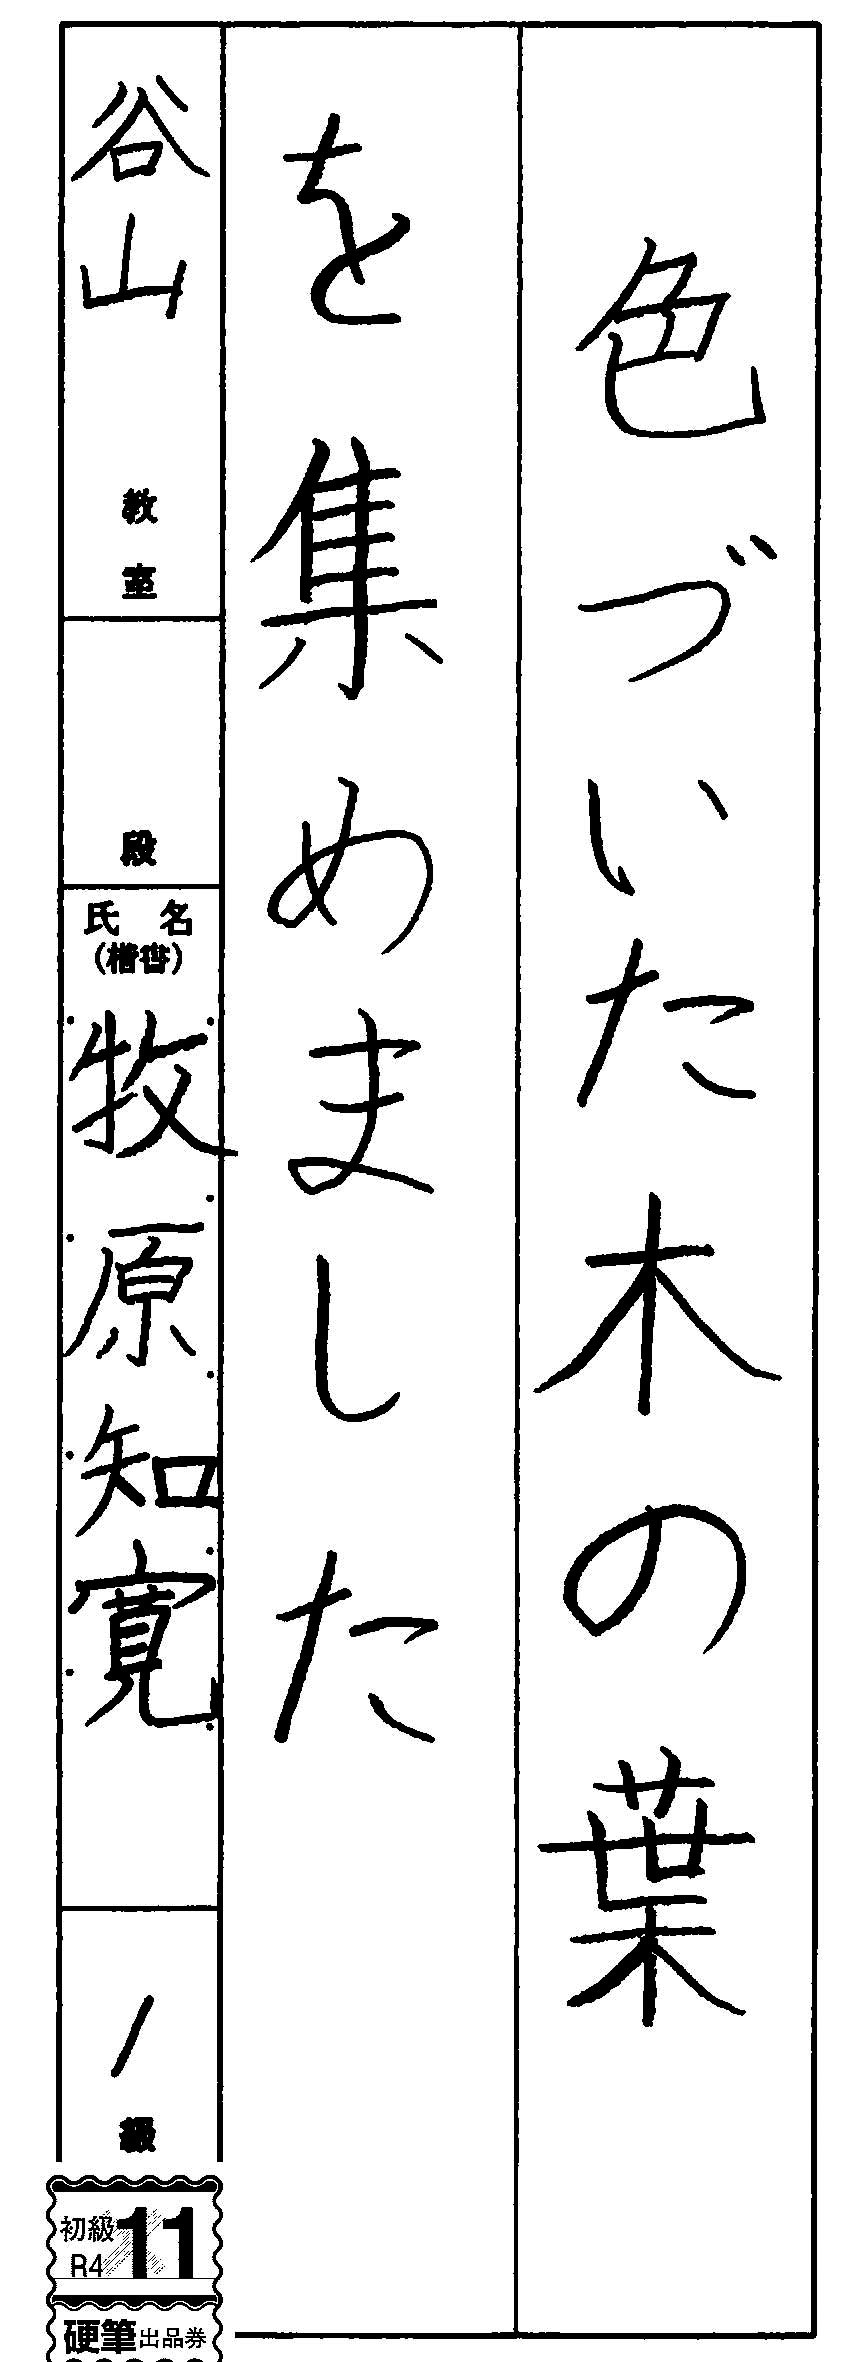 色づいた木の葉
を集めました
谷山 教室
段
氏名
(楷書)
牧原知寛
1 級
初級 11
R4
硬筆出品券